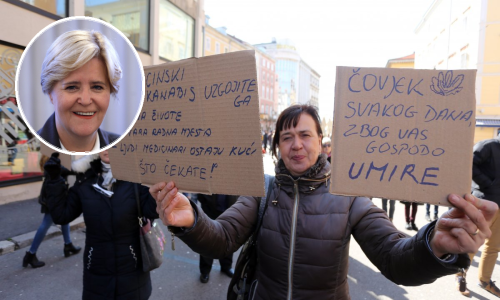 CINSKI
KANABIS UZGOJITE
GA
ŽIVOTE
ARA RADNA MJESTA
LJUDI MEDICINARI OSTAJU KUĆI
ŠTO ČEKATE!
ČOVJEK
SVAKOG DANA
ZBOG VAS
GOSPOĐO
UMIRE